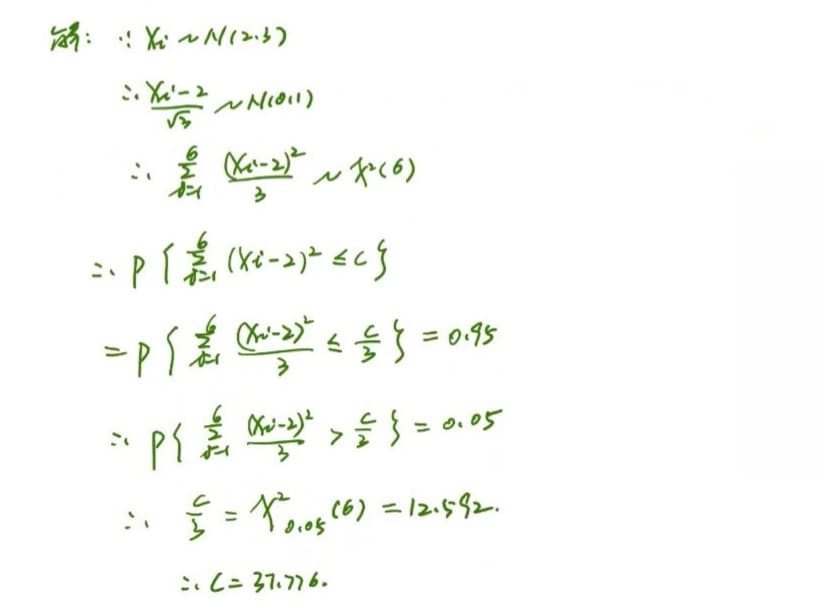 解: ∵ Xi ~ N(2.3)
∴ (Xi-2)/√3 ~ N(0,1)
∴ ∑_{i=1}^{6} (Xi-2)²/3 ~ χ²(6)
∴ P{∑_{i=1}^{6} (Xi-2)² ≤ C}
= P{∑_{i=1}^{6} (Xi-2)²/3 ≤ C/3} = 0.95
∴ P{∑_{i=1}^{6} (Xi-2)²/3 > C/2} = 0.05
∴ C/3 = χ²_{0.05}(6) = 12.592.
∴ C = 37.776.